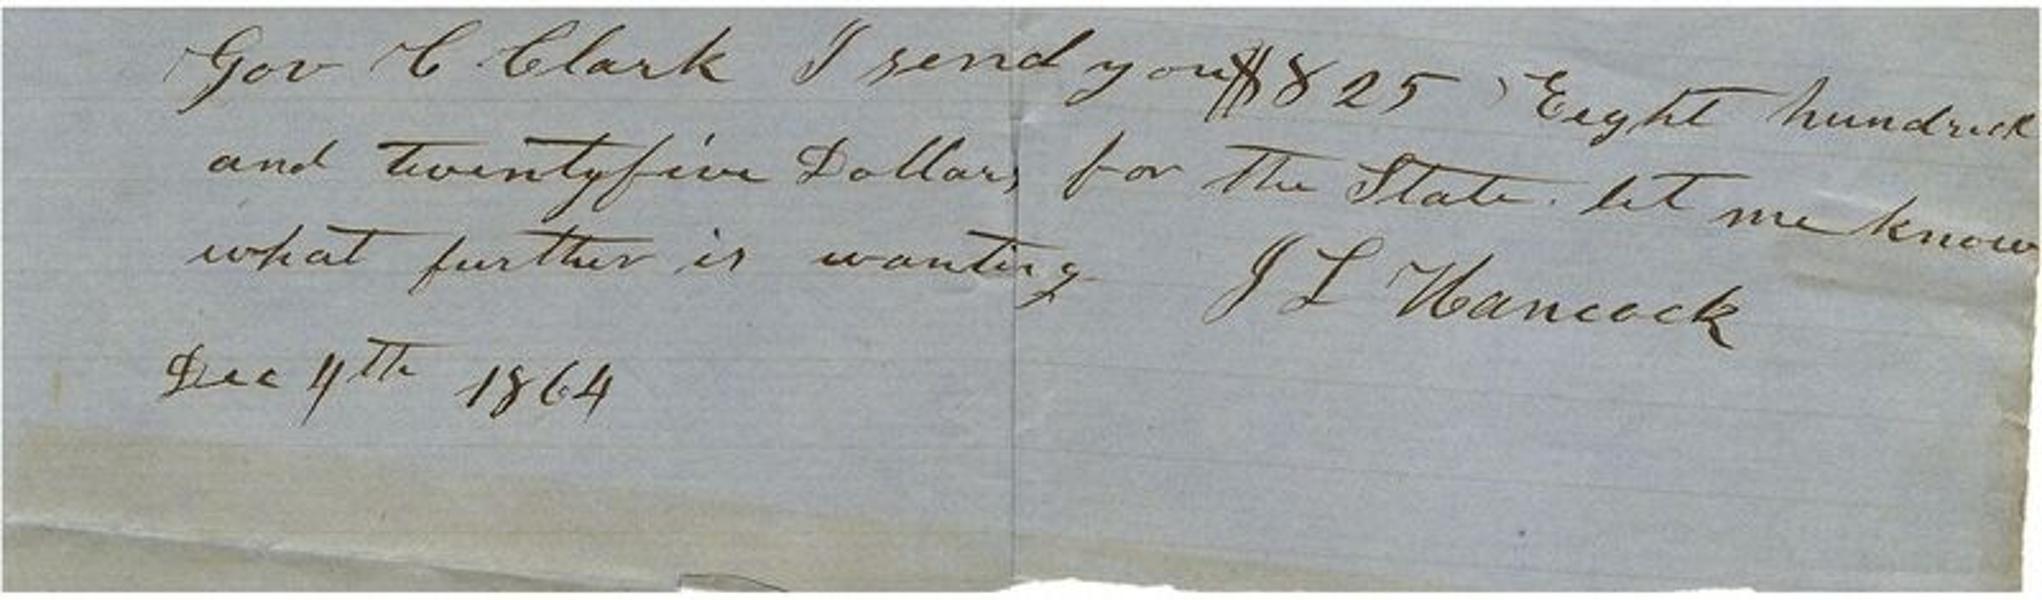 Gov C Clark I send you $825 Eight hundred
and twentyfive Dollars for the State. let me know
what further is wanting J L Hancock
Dec 4th 1864